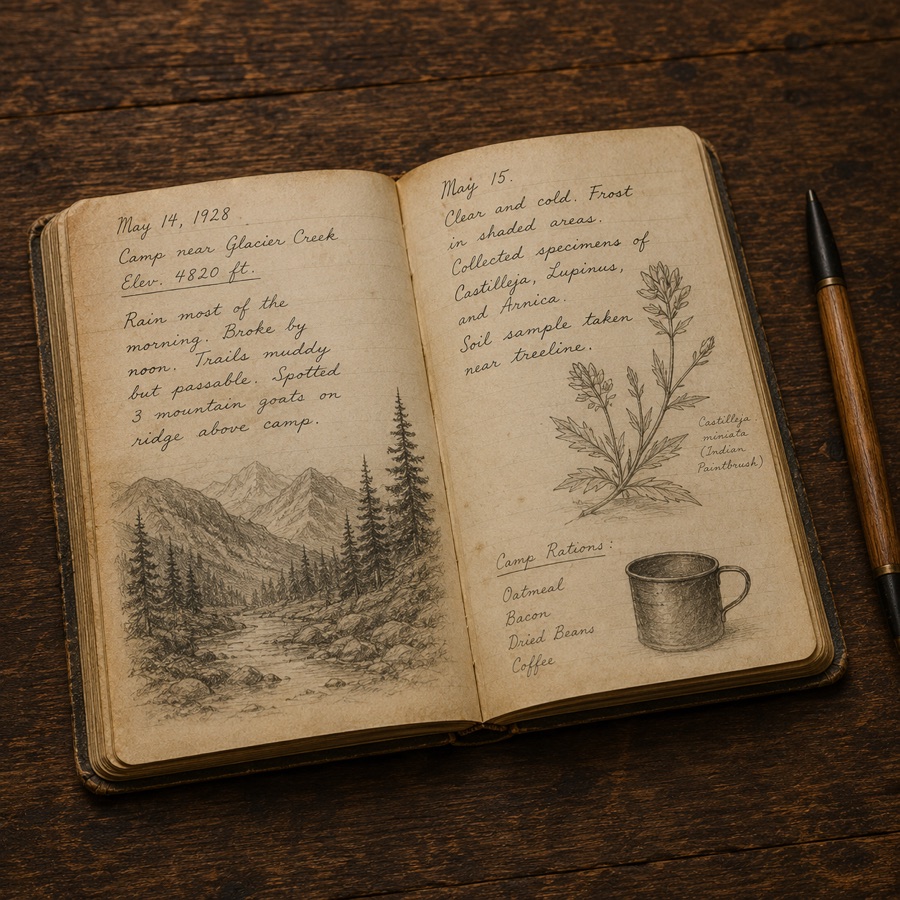 May 14, 1928
Camp near Glacier Creek
Elev. 4820 ft.
Rain most of the
morning. Broke by
noon. Trails muddy
but passable. Spotted
3 mountain goats on
ridge above camp.
May 15.
Clear and cold. Frost
in shaded areas.
Collected specimens of
Castilleja, Lupinus,
and Arnica.
Soil sample taken
near treeline.
Castilleja
miniata
(Indian
Paintbrush)
Camp Rations:
Oatmeal
Bacon
Dried Beans
Coffee